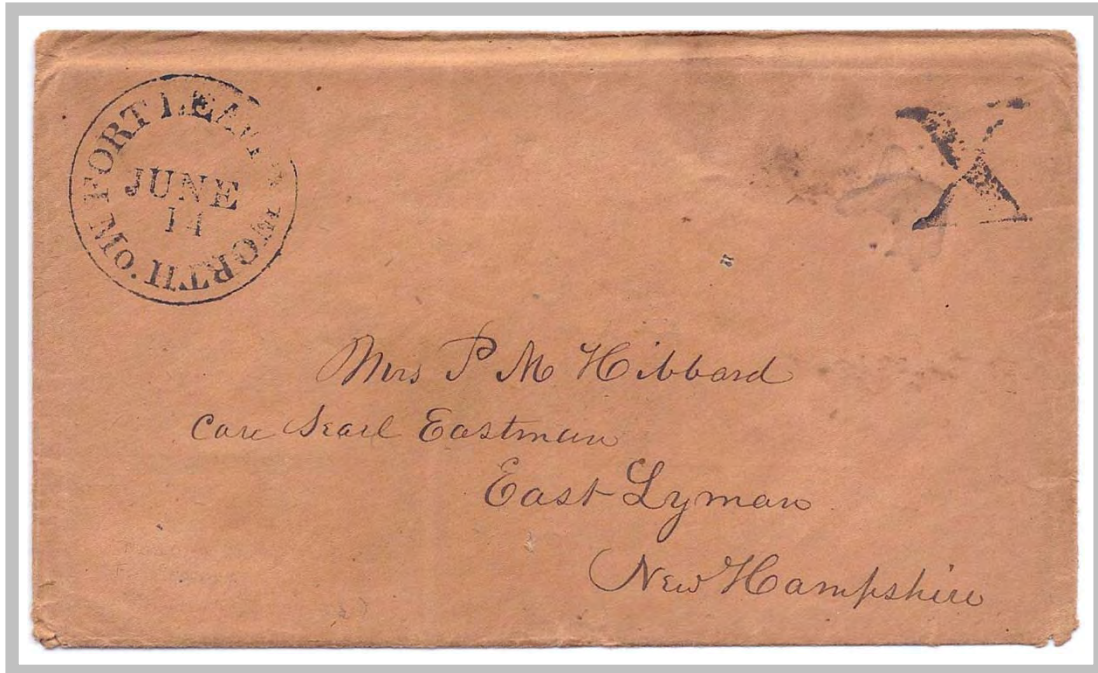 FORT LEAVENWORTH Mo.
JUNE
11
X
Mrs P M Hibbard
Care Searl Eastman
East Lyman
New Hampshire